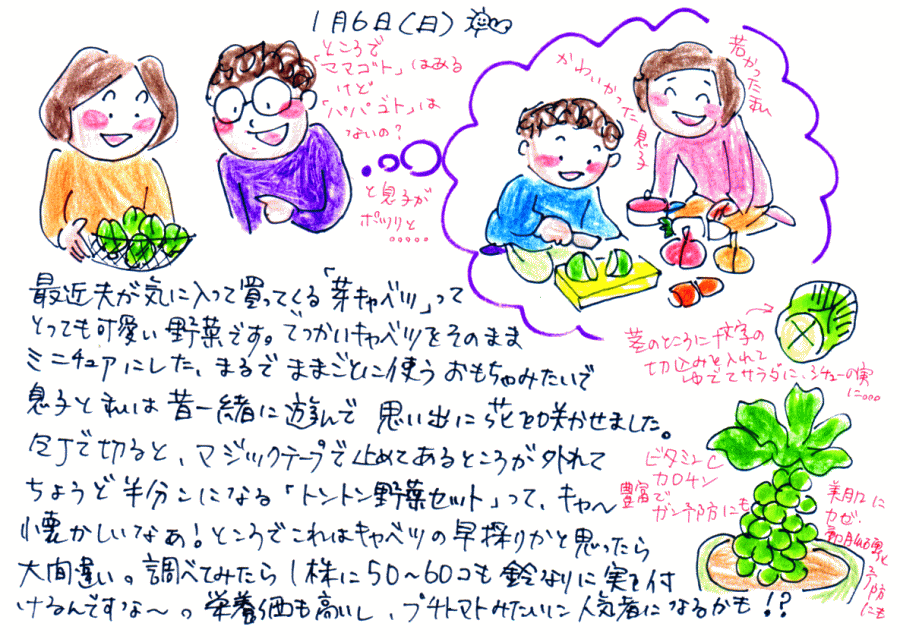 1月6日(日)
「ところで
「ママゴト」はある
けど
「パパゴト」は
ないの?
と息子が
ポツリと
・・・・・
かわいかった息子
若かった私
最近夫が気に入って買ってくる「芽キャベツ」って
とっても可愛い野菜です。でっかいキャベツをそのまま
ミニチュアにした、まるでままごとに使うおもちゃみたいで
息子と私は昔一緒に遊んで思い出に花を咲かせました。
包丁で切ると、マジックテープで止めてあるところが外れて
ちょうど半分こになる「トントン野菜セット」って、キャ〜
懐かしいなぁ!ところでこれはキャベツの早採りかと思ったら
大間違い。調べてみたら1株に50〜60コも鈴なりに実を付
けるんですな〜。栄養価も高いし、プチトマトみたいに人気者になるかも!?
茎のところに十文字の
切込みを入れて
ゆでてサラダに、シチューの実
に。。。
ビタミンC
カロチン
豊富で
ガン予防にも
美肌に
カゼ・
予防
にも